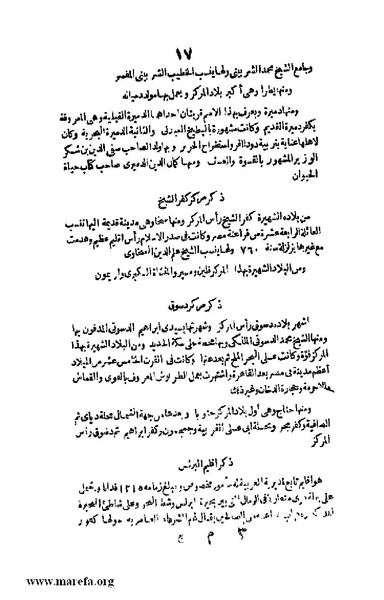 ١٧
وجامع الشيخ محمد الشربيني ولها ينسب الخطيب الشربيني المفسر
ومنها بطرا وهي أكبر بلاد المركز ويعمل بها مولد دميانه
ومنها دميرة ويعرف بهذا الاسم قريتان احداهما الدميرة القبلية وهي المعروفة
بكفر دميرة القديم وكانت مشهورة بالبطيخ العبدلي والثانية الدميرة البحرية وكان
لاهلها عناية بتربية دود القز واستخراج الحرير وبها ولد الصاحب صفي الدين بن شكر
الوزير المشهور بالقسوة والعسف ومنها كمال الدين الدميري صاحب كتاب حياة
الحيوان
ذكر مركز كفر الشيخ
من بلاده الشهيرة كفر الشيخ رأس المركز ومنها سخا وهي مدينة قديمة اليها تنسب
العائلة الرابعة عشرة من فراعنة مصر وكانت في صدر الاسلام رأس اقليم عظيم وهدمت
مع غيرها بزلزلة سنة ٧٦٠ ولها ينسب الشيخ علم الدين السخاوي
ومن البلاد الشهيرة بهذا المركز قلين ومسير والكبرى واريمون
ذكر مركز دسوق
أشهر بلاده دسوق رأس المركز وشهرتها بسيدي ابراهيم الدسوقي المدفون بها
ومنها الشيخ محمد الدسوقي المالكي وبها محطة على سكة الحديد ومن البلاد الشهيرة بهذا
المركز فوة وكانت على البحر الملح ثم بعد عنها وكانت في القرن الخامس عشر من الميلاد
أعظم مدينة في مصر بعد القاهرة واشتهرت بعمل الطرابيش المعروف بالفوى والقماش
وتجارة الدخان وغير ذلك
ومنها جناج وهي أول بلاد المركز جنوبا وبعدها من جهة الشمال محلة دياي ثم
الصافية وكفر مجر وبحضنة ابى على الغربية وجميجون وكفر ابراهيم ثم دسوق رأس
المركز
ذكر اقليم البرلس
هو اقليم تابع لمديرية الغربية مأمور مخصوص ويبلغ زمامه ١٢١٥ فدانا ويشتمل
على
٣ م ع
www.marefa.org